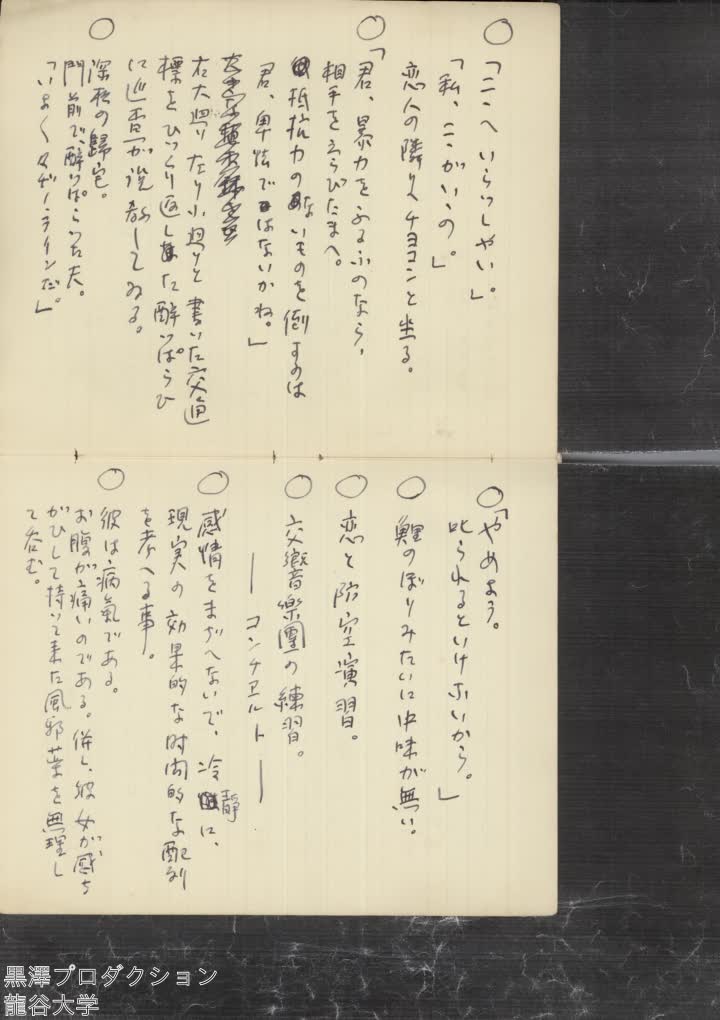 ○
「ここへいらつしやい。」
「私、ここがいゝの。」
恋人の隣りへチヨコンと坐る。
○
「君、暴力をふるふのなら、
相手をえらびたまへ。
抵抗力のないものを倒すのは
君、卑怯ではないかね。」
右大廻り左り小廻りと書いた交通
標をひつくり返した酔つぱらひ
に巡査が説教してゐる。
○
深夜の歸宅。
門前で、酔つぱらつた夫。
「いよ〱マヂノラインだ。」
○
「やめよう。
叱られるといけないから。」
○
鯉のぼりみたいに中味が無い。
○
恋と防空演習。
○
交響樂團の練習。
― コンチェルト ―
○
感情をまぢへないで、冷静に、
現実の効果的な時間的な配列
を考へる事。
○
彼は病氣である。
お腹が痛いのである。併し、彼女が感ち
がひして持いて来た風邪薬を無理し
て呑む。
黒澤プロダクション
龍谷大学